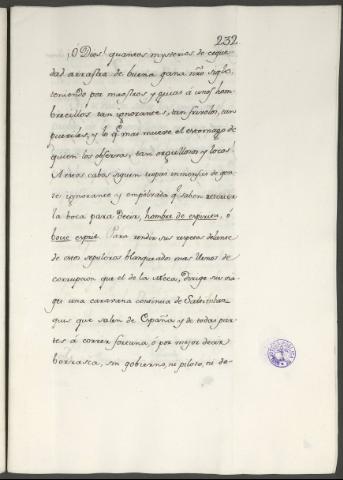 232
¡O Dios! quantos mysterios de cegue-
dad arrastra de buena gana nr̃o siglo,
teniendo por maestros y guias á unos hom-
brecillos tan ignorantes, tan frivolos, tan
pueriles, y lo q.e mas mueve el estomago de
quien los observa, tan orgullosos y locos!
A estos cabos siguen tropas inmensas de gen-
te ignorante y empolvada q.e saben retorcer
la boca para decir, hombre de espiritu, ó
boué esprit. Para rendir sus respetos delante
de estos sepulcros blanqueados mas llenos de
corrupcion que el de la Meca, dirige su via-
ge una caravana continua de
que salen de España y de todas par-
tes á correr fortuna, ó por mejor decir
borrasca, sin gobierno, ni piloto, ni de-